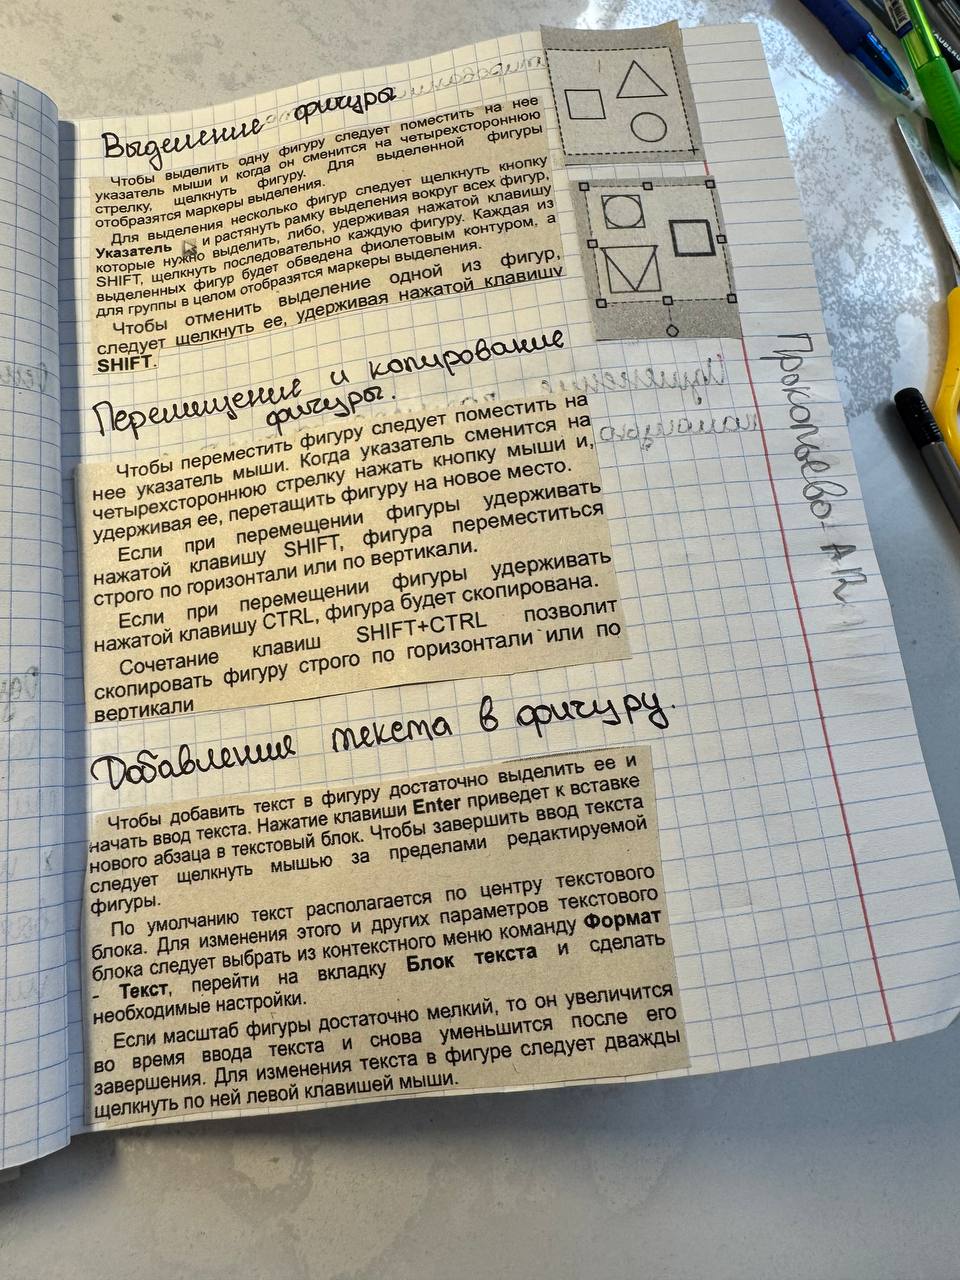 Выделение фигуры
Чтобы выделить одну фигуру следует поместить на нее
указатель мыши и когда он сменится на четырехстороннюю
стрелку, щелкнуть фигуру. Для выделенной фигуры
отобразятся маркеры выделения.
Для выделения несколько фигур следует щелкнуть кнопку
Указатель и растянуть рамку выделения вокруг всех фигур,
которые нужно выделить, либо, удерживая нажатой клавишу
SHIFT, щелкнуть последовательно каждую фигуру. Каждая из
выделенных фигур будет обведена фиолетовым контуром, а
для группы в целом отобразятся маркеры выделения.
Чтобы отменить выделение одной из фигур,
следует щелкнуть ее, удерживая нажатой клавишу
SHIFT.
Перемещение и копирование
фигуры.
Чтобы переместить фигуру следует поместить на
нее указатель мыши. Когда указатель сменится на
четырехстороннюю стрелку нажать кнопку мыши и,
удерживая ее, перетащить фигуру на новое место.
Если при перемещении фигуры удерживать
нажатой клавишу SHIFT, фигура переместиться
строго по горизонтали или по вертикали.
Если при перемещении фигуры удерживать
нажатой клавишу CTRL, фигура будет скопирована.
Сочетание клавиш SHIFT+CTRL позволит
скопировать фигуру строго по горизонтали или по
вертикали
Добавление текста в фигуру.
Чтобы добавить текст в фигуру достаточно выделить ее и
начать ввод текста. Нажатие клавиши Enter приведет к вставке
нового абзаца в текстовый блок. Чтобы завершить ввод текста
следует щелкнуть мышью за пределами редактируемой
фигуры.
По умолчанию текст располагается по центру текстового
блока. Для изменения этого и других параметров текстового
блока следует выбрать из контекстного меню команду Формат
- Текст, перейти на вкладку Блок текста и сделать
необходимые настройки.
Если масштаб фигуры достаточно мелкий, то он увеличится
во время ввода текста и снова уменьшится после его
завершения. Для изменения текста в фигуре следует дважды
щелкнуть по ней левой клавишей мыши.